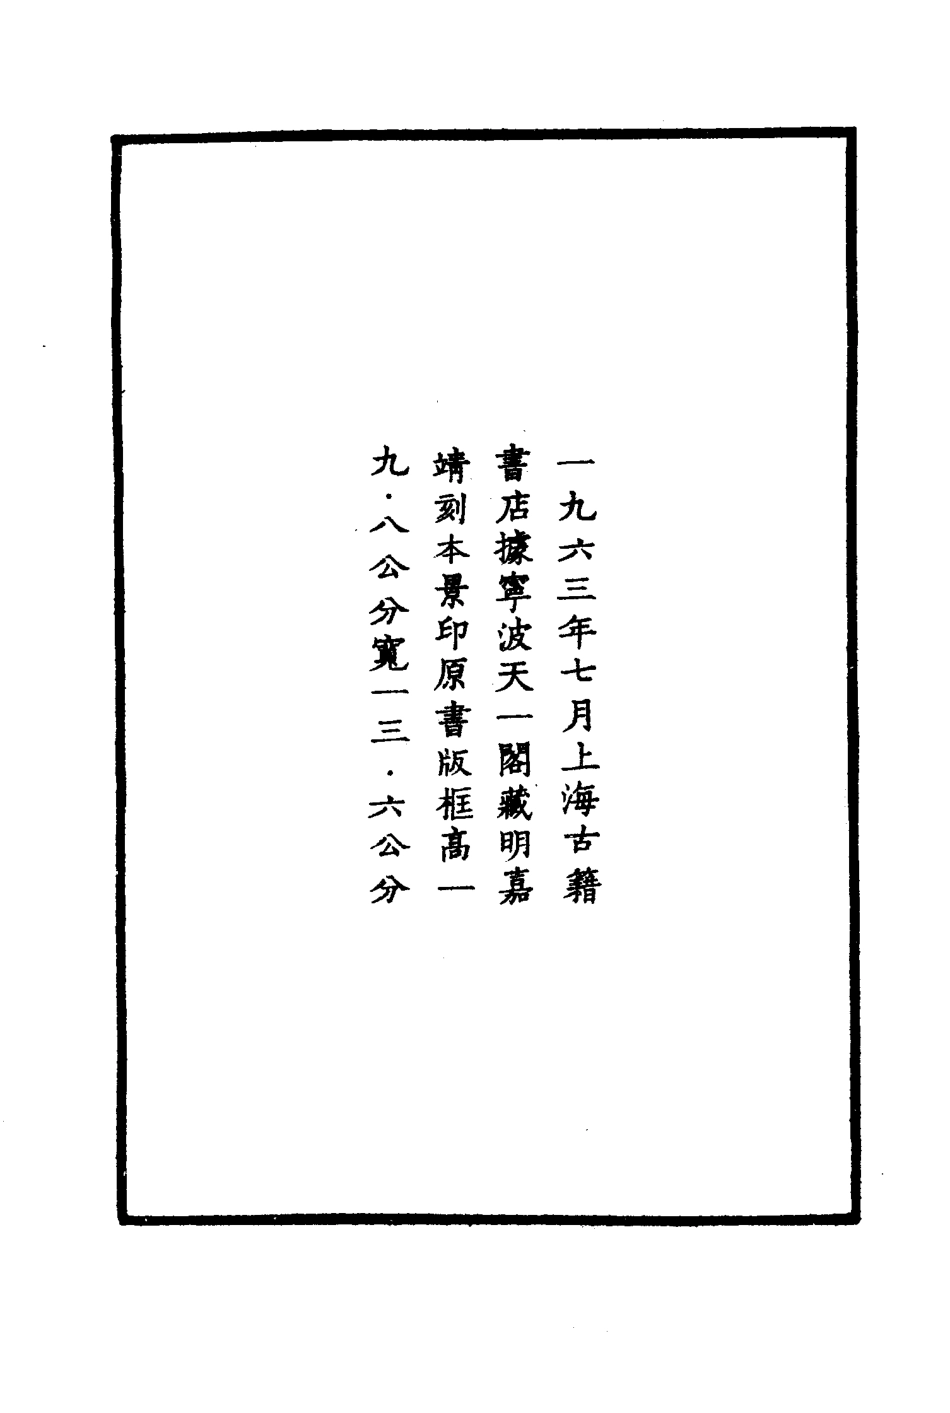 一九六三年七月上海古籍
書店據寧波天一閣藏明嘉
靖刻本景印原書版框高一
九·八公分寬一三·六公分